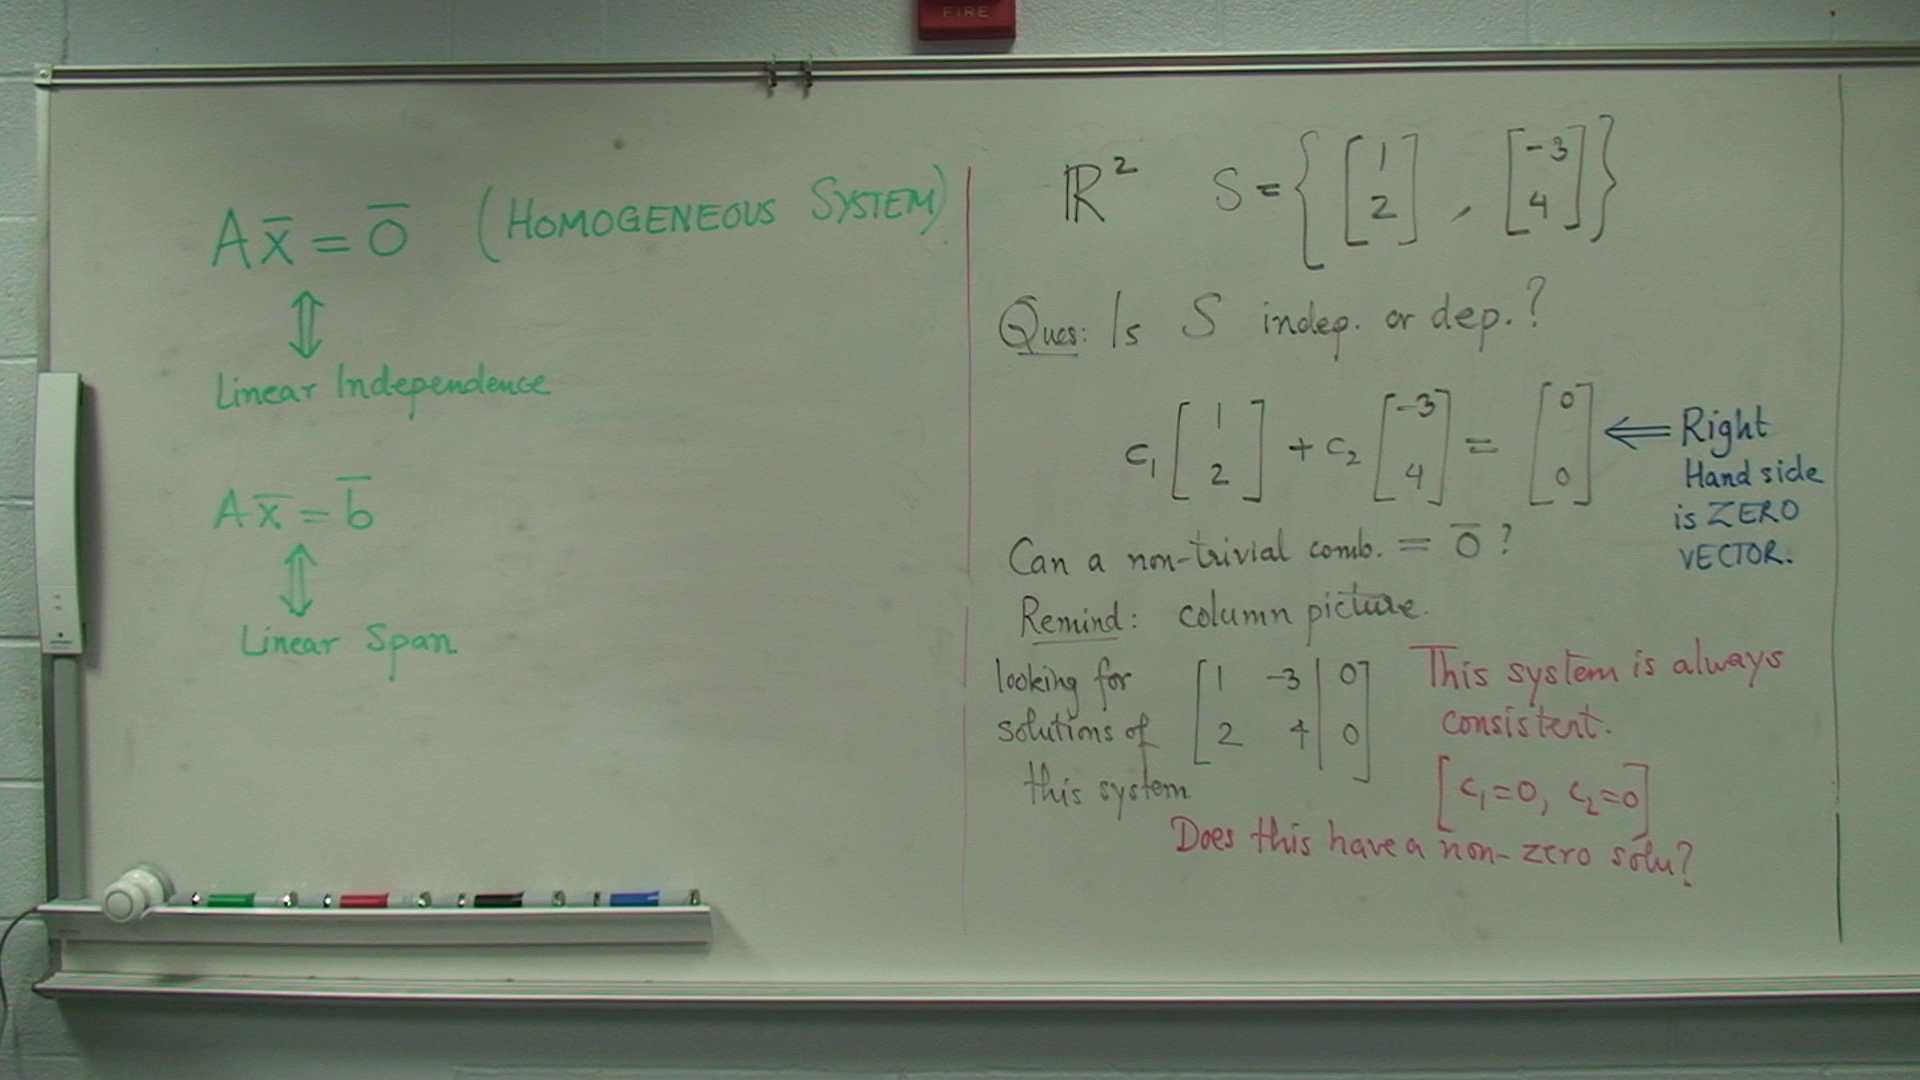 FIRE
Ax̅ = 0̅ (HOMOGENEOUS SYSTEM)
⇕
Linear Independence
Ax̅ = b̅
⇕
Linear Span
ℝ² S = { [1 2] , [-3 4] }
Ques: Is S indep. or dep.?
c₁ [1 2] + c₂ [-3 4] = [0 0] ⇐ Right
Hand side
is ZERO
VECTOR.
Can a non-trivial comb. = 0̅ ?
Remind: column picture.
looking for
solutions of
this system
[1 -3 | 0
2 4 | 0]
This system is always
consistent.
[c₁=0, c₂=0]
Does this have a non-zero solu?